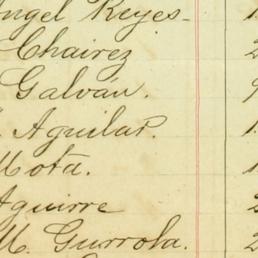 Angel Reyes-
Chairez
Galván.
Aguilar.
Mota.
Aguirre
M. Gurrola.